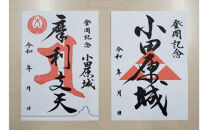 登閣記念
小田原城
摩利支天
令和　年　月　日
登閣記念
小田原城
令和　年　月　日